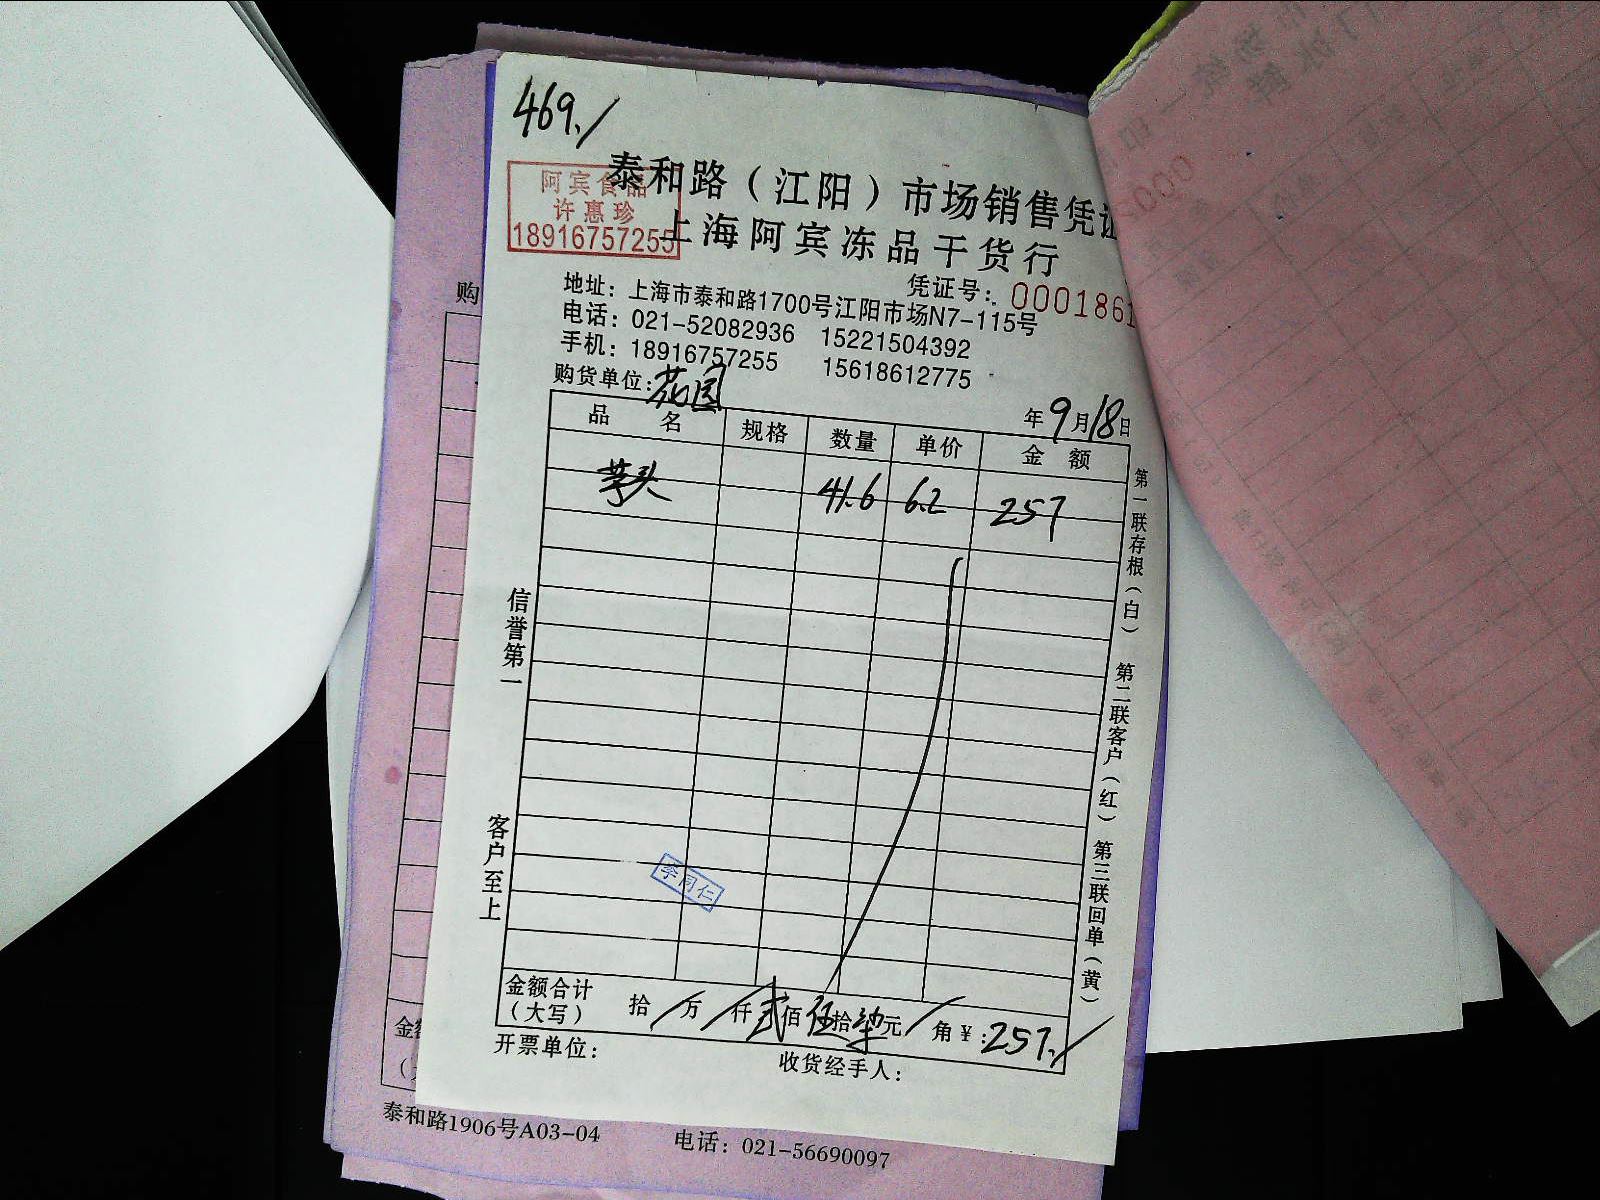 469./
泰和路（江阳）市场销售凭证
阿宾食品
许惠珍
18916757255
上海阿宾冻品干货行
凭证号：0001861
地址：上海市泰和路1700号江阳市场N7-115号
电话：021-52082936 15221504392
手机：18916757255 15618612775
购货单位：花园
年9月18日
品名 规格 数量 单价 金额
芋头 41.6 6.2 257
第一联存根（白） 第二联客户（红） 第三联回单（黄）
信誉第一
客户至上
李同仁
金额合计（大写） 拾/万/仟贰佰伍拾柒元/角￥：257./
开票单位： 收货经手人：
购
金
泰和路1906号A03-04 电话：021-56690097